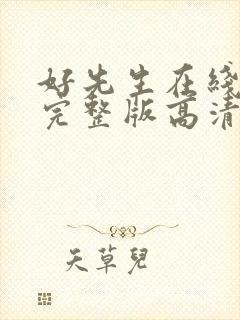 好先生在线
完整版高清
天草兒